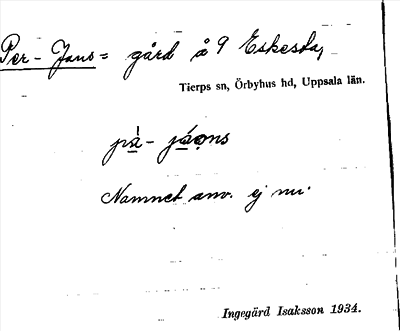 Per-Jans = gård å 9 Eskesta,
Tierps sn, Örbyhus hd, Uppsala län.
pà - jáons
Namnet anv. ej nu.
Ingegärd Isaksson 1934.